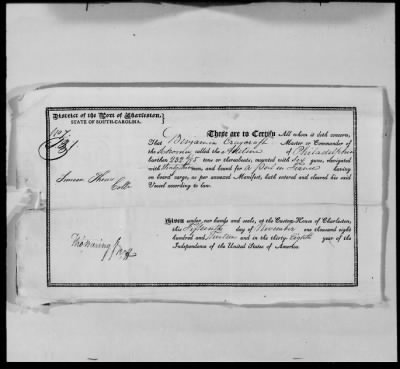 District of the Port of Charleston,
STATE OF SOUTH-CAROLINA.
These are to Certify All whom it doth concern,
That Benjamin Master or Commander of
the Schooner called the Adeline of Philadelphia
burthen 232 /95 tons or thereabouts, mounted with Six guns, navigated
with men, and bound for a Port in France having
on board cargo, as per annexed Manifest, hath entered and cleared his said
Vessel according to law.
Simeon Theus
Collr
Given under our hands and seals, at the Custom-House of Charleston,
this Fifteenth day of November one thousand eight
hundred and and in the thirty Eighth year of the
Independence of the United States of America.
Tho Waring